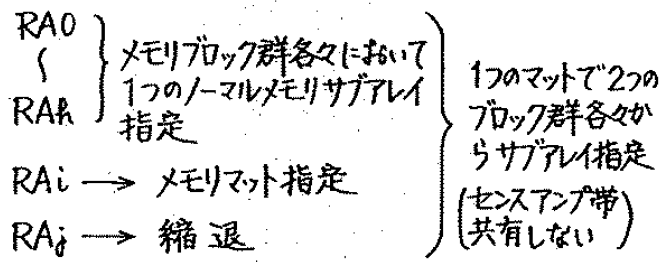 RA0
〜
RAk
メモリブロック群各々において
1つのノーマルメモリサブアレイ
指定
RAi → メモリマット指定
RAj → 縮退
1つのマットで2つの
ブロック群各々か
らサブアレイ指定
(センスアンプ帯
共有しない)